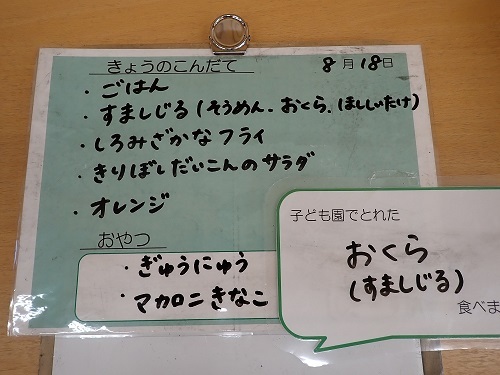 きょうのこんだて 8月18日
・ごはん
・すましじる(そうめん．おくら．ほししいたけ)
・しろみざかなフライ
・きりぼしだいこんのサラダ
・オレンジ
おやつ
・ぎゅうにゅう
・マカロニきなこ
子ども園でとれた
おくら
(すましじる)
食べま